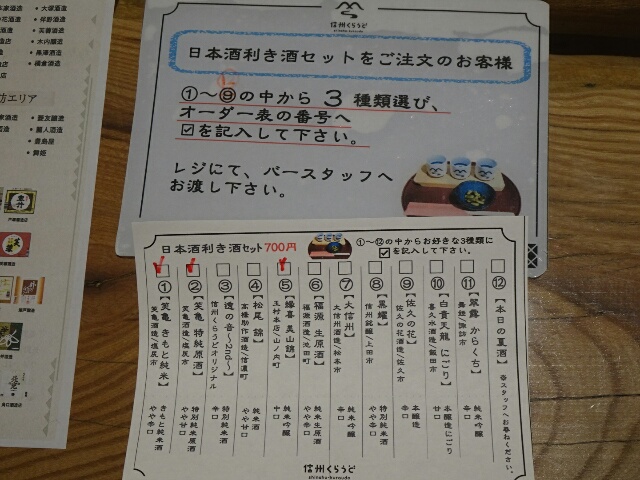 本家酒造
・大塚酒造
の花酒造
・伴野酒造
・芙蓉酒造
・木内醸造
・黒澤酒造
・橘倉酒造
訪エリア
・豊島屋
・舞姫
信州くらうど
shinshu-kuraudo
日本酒利き酒セットをご注文のお客様
①〜⑨の中から 3 種類選び、
⑫
オーダー表の番号へ
☑を記入して下さい。
レジにて、バースタッフへ
お渡し下さい。
日本酒利き酒セット 700円
①〜⑫の中からお好きな3種類に
☑を記入して下さい。
⑫【本日の夏酒】 ※スタッフへお尋ねください。
⑪【翠露 からくち】
舞姫/諏訪市 純米吟醸 辛口
⑩【白貴天龍 にごり】
喜久水酒造/飯田市 本醸造にごり 甘口
⑨【佐久の花】
佐久の花酒造/佐久市 本醸造 辛口
⑧【黒耀】
信州銘醸/上田市 特別純米酒 やや辛口
⑦【大信州】
大信州酒造/松本市 純米吟醸 辛口
⑥【福源 生原酒】
福源酒造/池田町 純米生原酒 やや辛口
⑤【縁喜 美山錦】
玉村本店/山ノ内町 純米吟醸 中口
④【松尾 錦】
高橋助作酒造/信濃町 純米酒 やや甘口
③【遠の音〜2nd〜】
信州くらうどオリジナル 特別純米酒 辛口
②【笑亀 特純原酒】
笑亀酒造/塩尻市 特別純米原酒 やや甘口
①【笑亀 きもと純米】
笑亀酒造/塩尻市 きもと純米酒 やや辛口
信州くらうど
shinshu-kuraudo